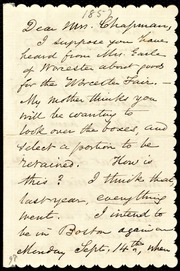 [1857]
Dear Mrs. Chapman,
I suppose you have
heard from Mrs. Earle
of Worcester about goods
for the Worcester Fair.
My mother thinks you
will be wanting to
look over the boxes, and
select a portion to be
retained. How is
this? I think that
last year, everything
went. I intend to
be in Boston again on
Monday Sept. 14th, when